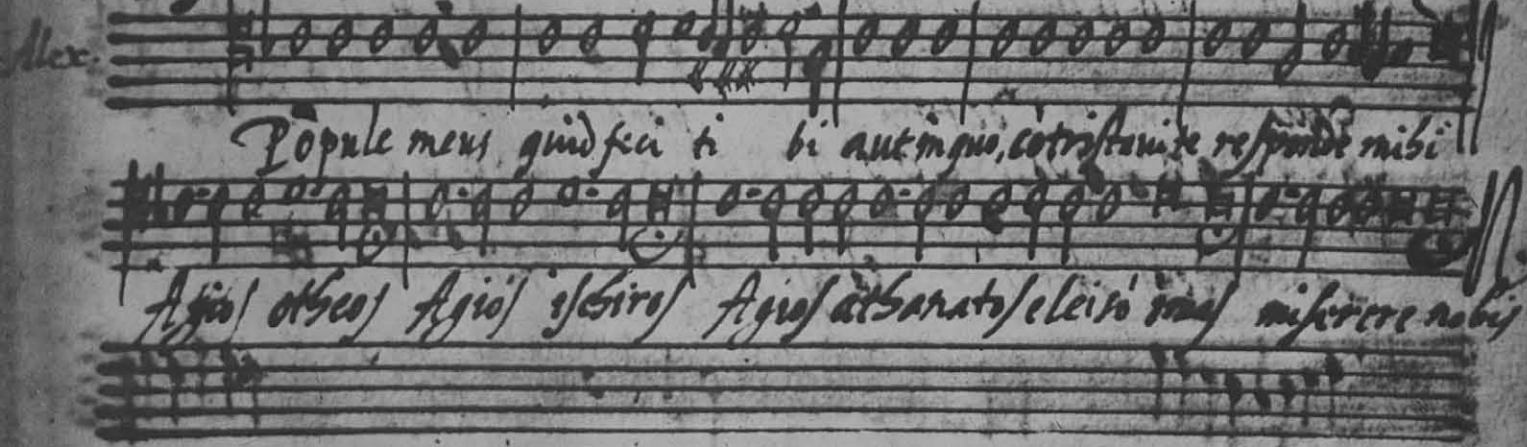 Alex.
Põpule meus quid feci ti bi aut in quo, cõtristavi te responde mihi
Agios otheos Agios ischiros Agios athanatos eleisõ imas miserere nobis